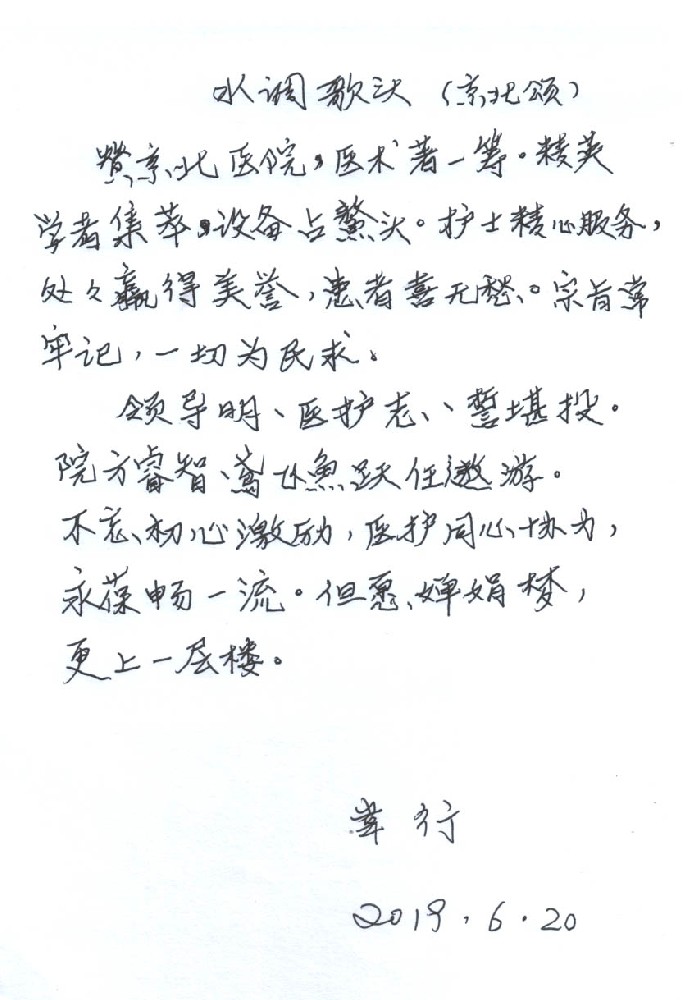 水调歌头（京北颂）
赞京北医院，医术著一筹。精英
学者集萃，设备占鳌头。护士精心服务，
处々赢得美誉，患者喜无愁。宗旨常
牢记，一切为民求。
领导明、医护志、誓堪投。
院方睿智、鸢飞魚跃任遨游。
不忘初心激励，医护同心协力，
永葆畅一流。但愿婵娟梦，
更上一层楼。
行
2019.6.20